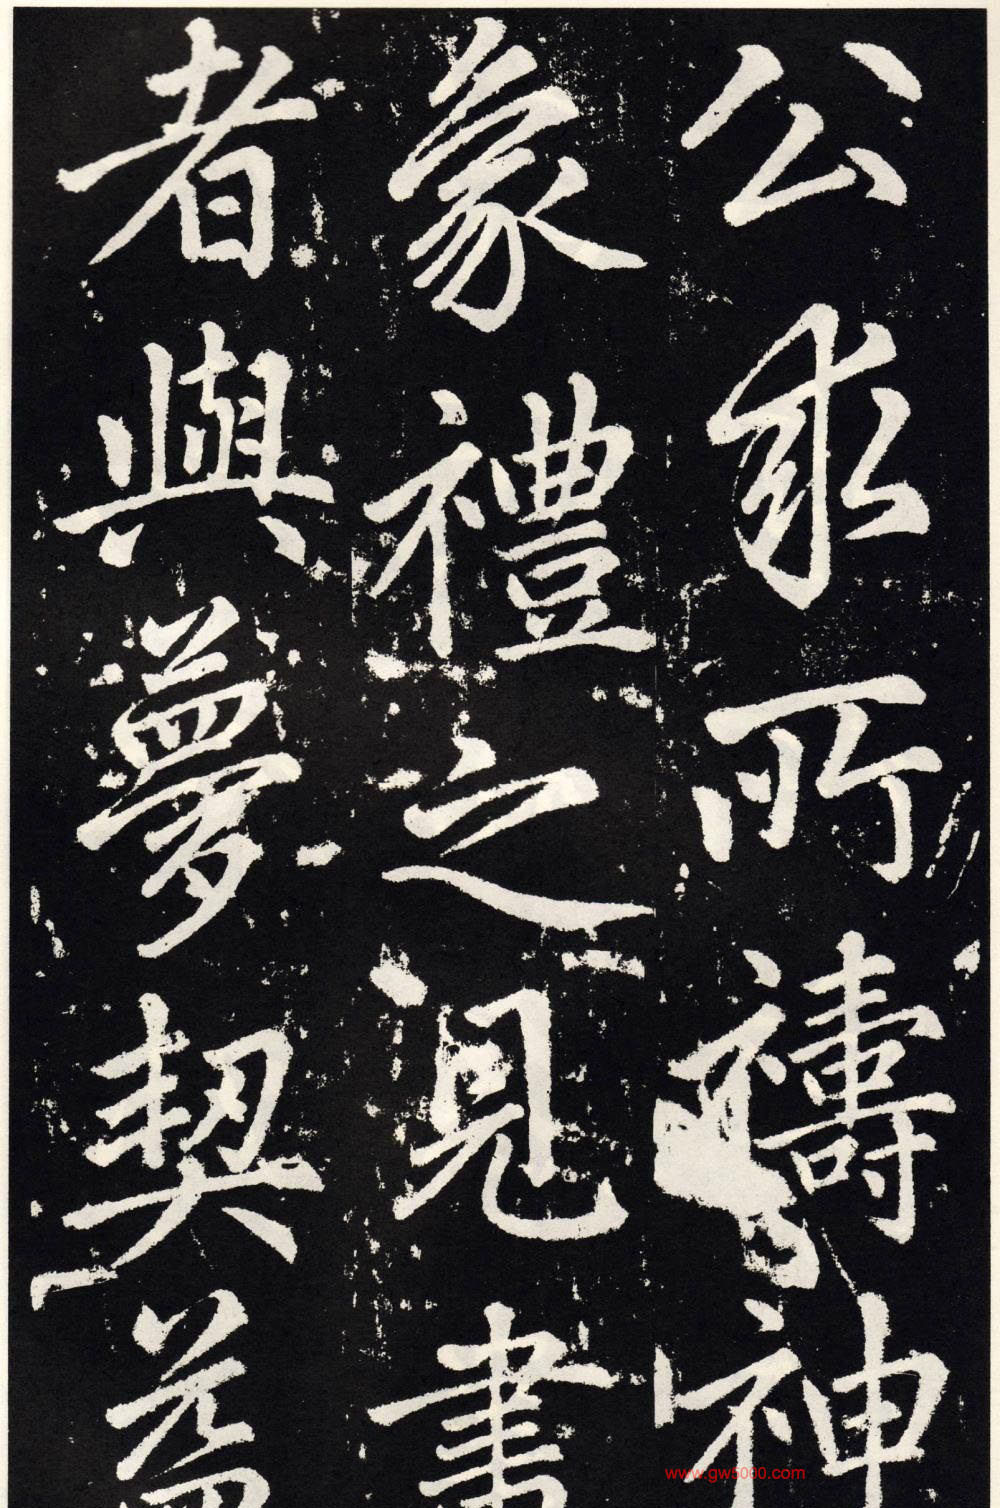 公求所禱神
象禮之見
者與夢契
www.gw5000.com